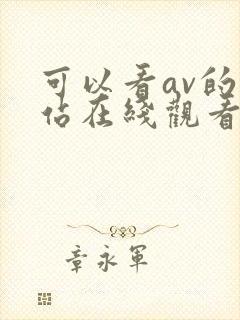 可以看av的
佔在綫觀看
章永軍